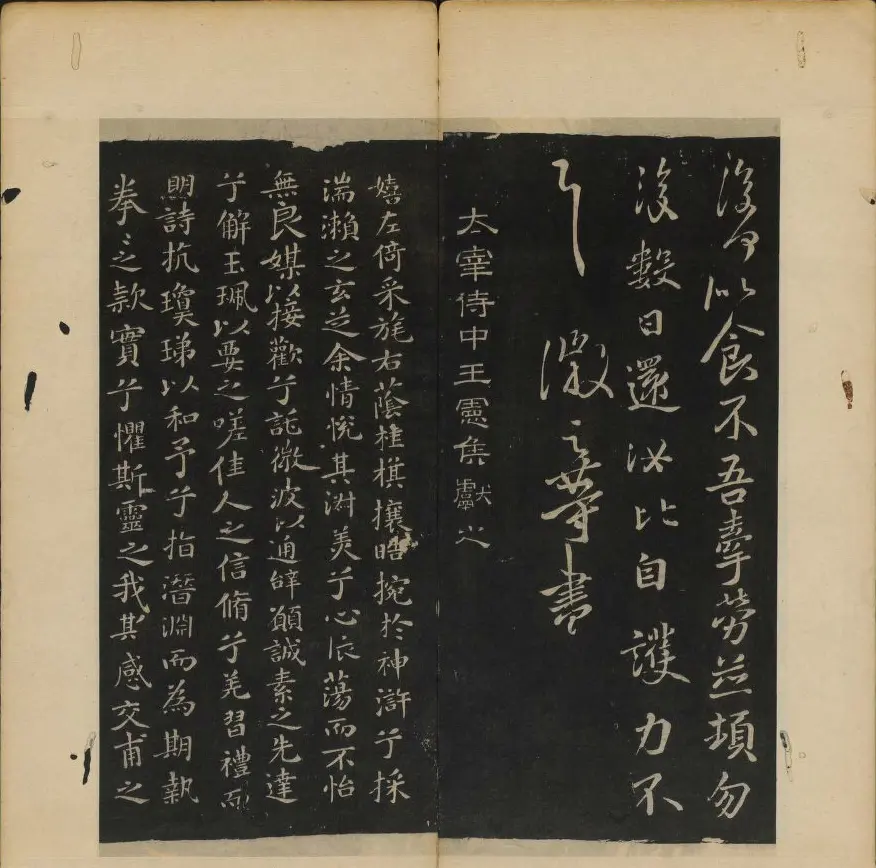 復何似食不吾牽勞並頓勿
復數日還汝比自護力不
具 徽之等書
太宰侍中王憲集獻之
嬉左倚采旄右蔭桂棋攘晧捥於神滸兮採
湍瀨之玄芝余情悅其淋美兮心振蕩而不怡
無良媒以接歡兮託微波以通辭願誠素之先達
兮解玉珮以要之嗟佳人之信脩兮羌習禮而
朙詩抗瓊珶以和予兮指潛淵而為期執
拳〻之款實兮懼斯靈之我其感交甫之